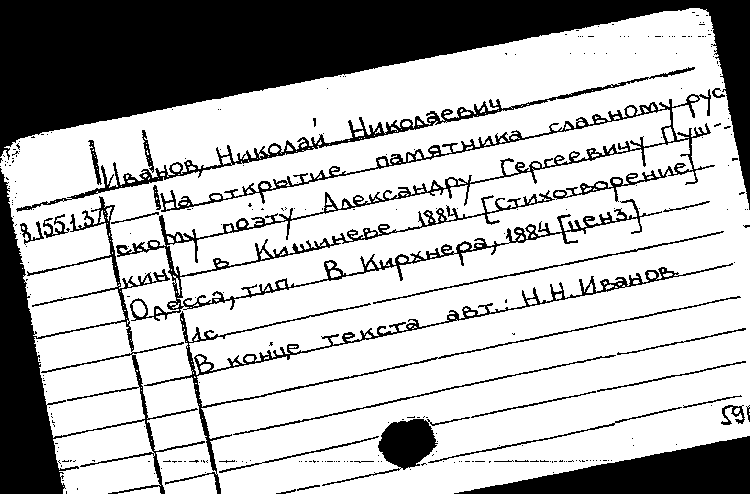 Иванов, Николай Николаевич
На открытие памятника славному рус
8.1551.377
скому поэту Александру Сергеевичу Пуш-
кину в Кишиневе 1884. [Стихотворение]
Одесса, тип. В Кирхнера, 1884 [ценз.].
1с.
В конце текста авт.: Н.Н.Иванов.